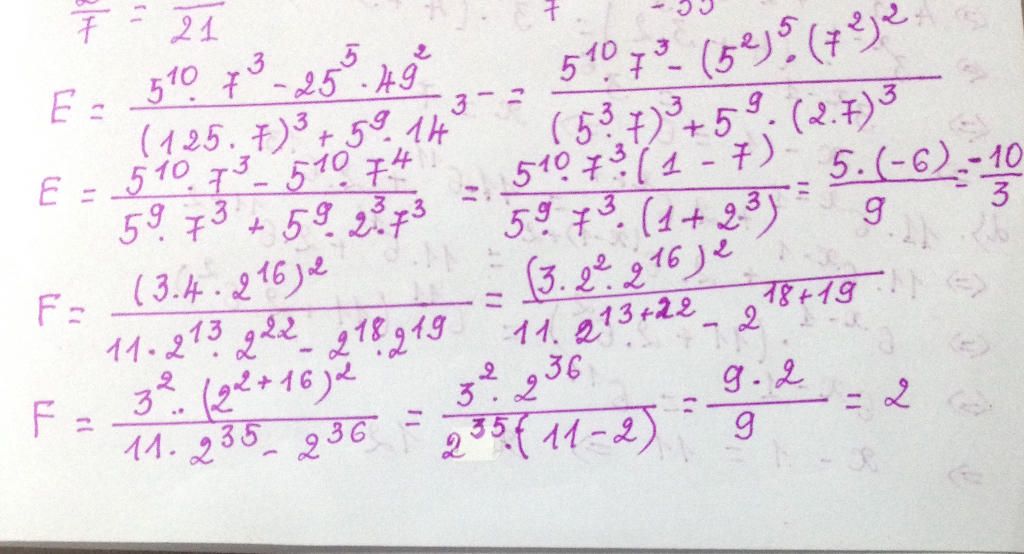 7 = 21 7 - 35
E = (5^10 . 7^3 - 25^5 . 49^2) / ((125 . 7)^3 + 5^9 . 14^3) = (5^10 . 7^3 - (5^2)^5 . (7^2)^2) / ((5^3 . 7)^3 + 5^9 . (2.7)^3)
E = (5^10 . 7^3 - 5^10 . 7^4) / (5^9 . 7^3 + 5^9 . 2^3 . 7^3) = (5^10 . 7^3 . (1 - 7)) / (5^9 . 7^3 . (1 + 2^3)) = (5 . (-6)) / 9 = -10 / 3
F = (3.4 . 2^16)^2 / (11 . 2^13 . 2^22 - 2^18 . 2^19) = (3 . 2^2 . 2^16)^2 / (11 . 2^13+22 - 2^18+19)
F = (3^2 .. (2^2+16)^2) / (11 . 2^35 - 2^36) = (3^2 . 2^36) / (2^35 . (11 - 2)) = (9 . 2) / 9 = 2